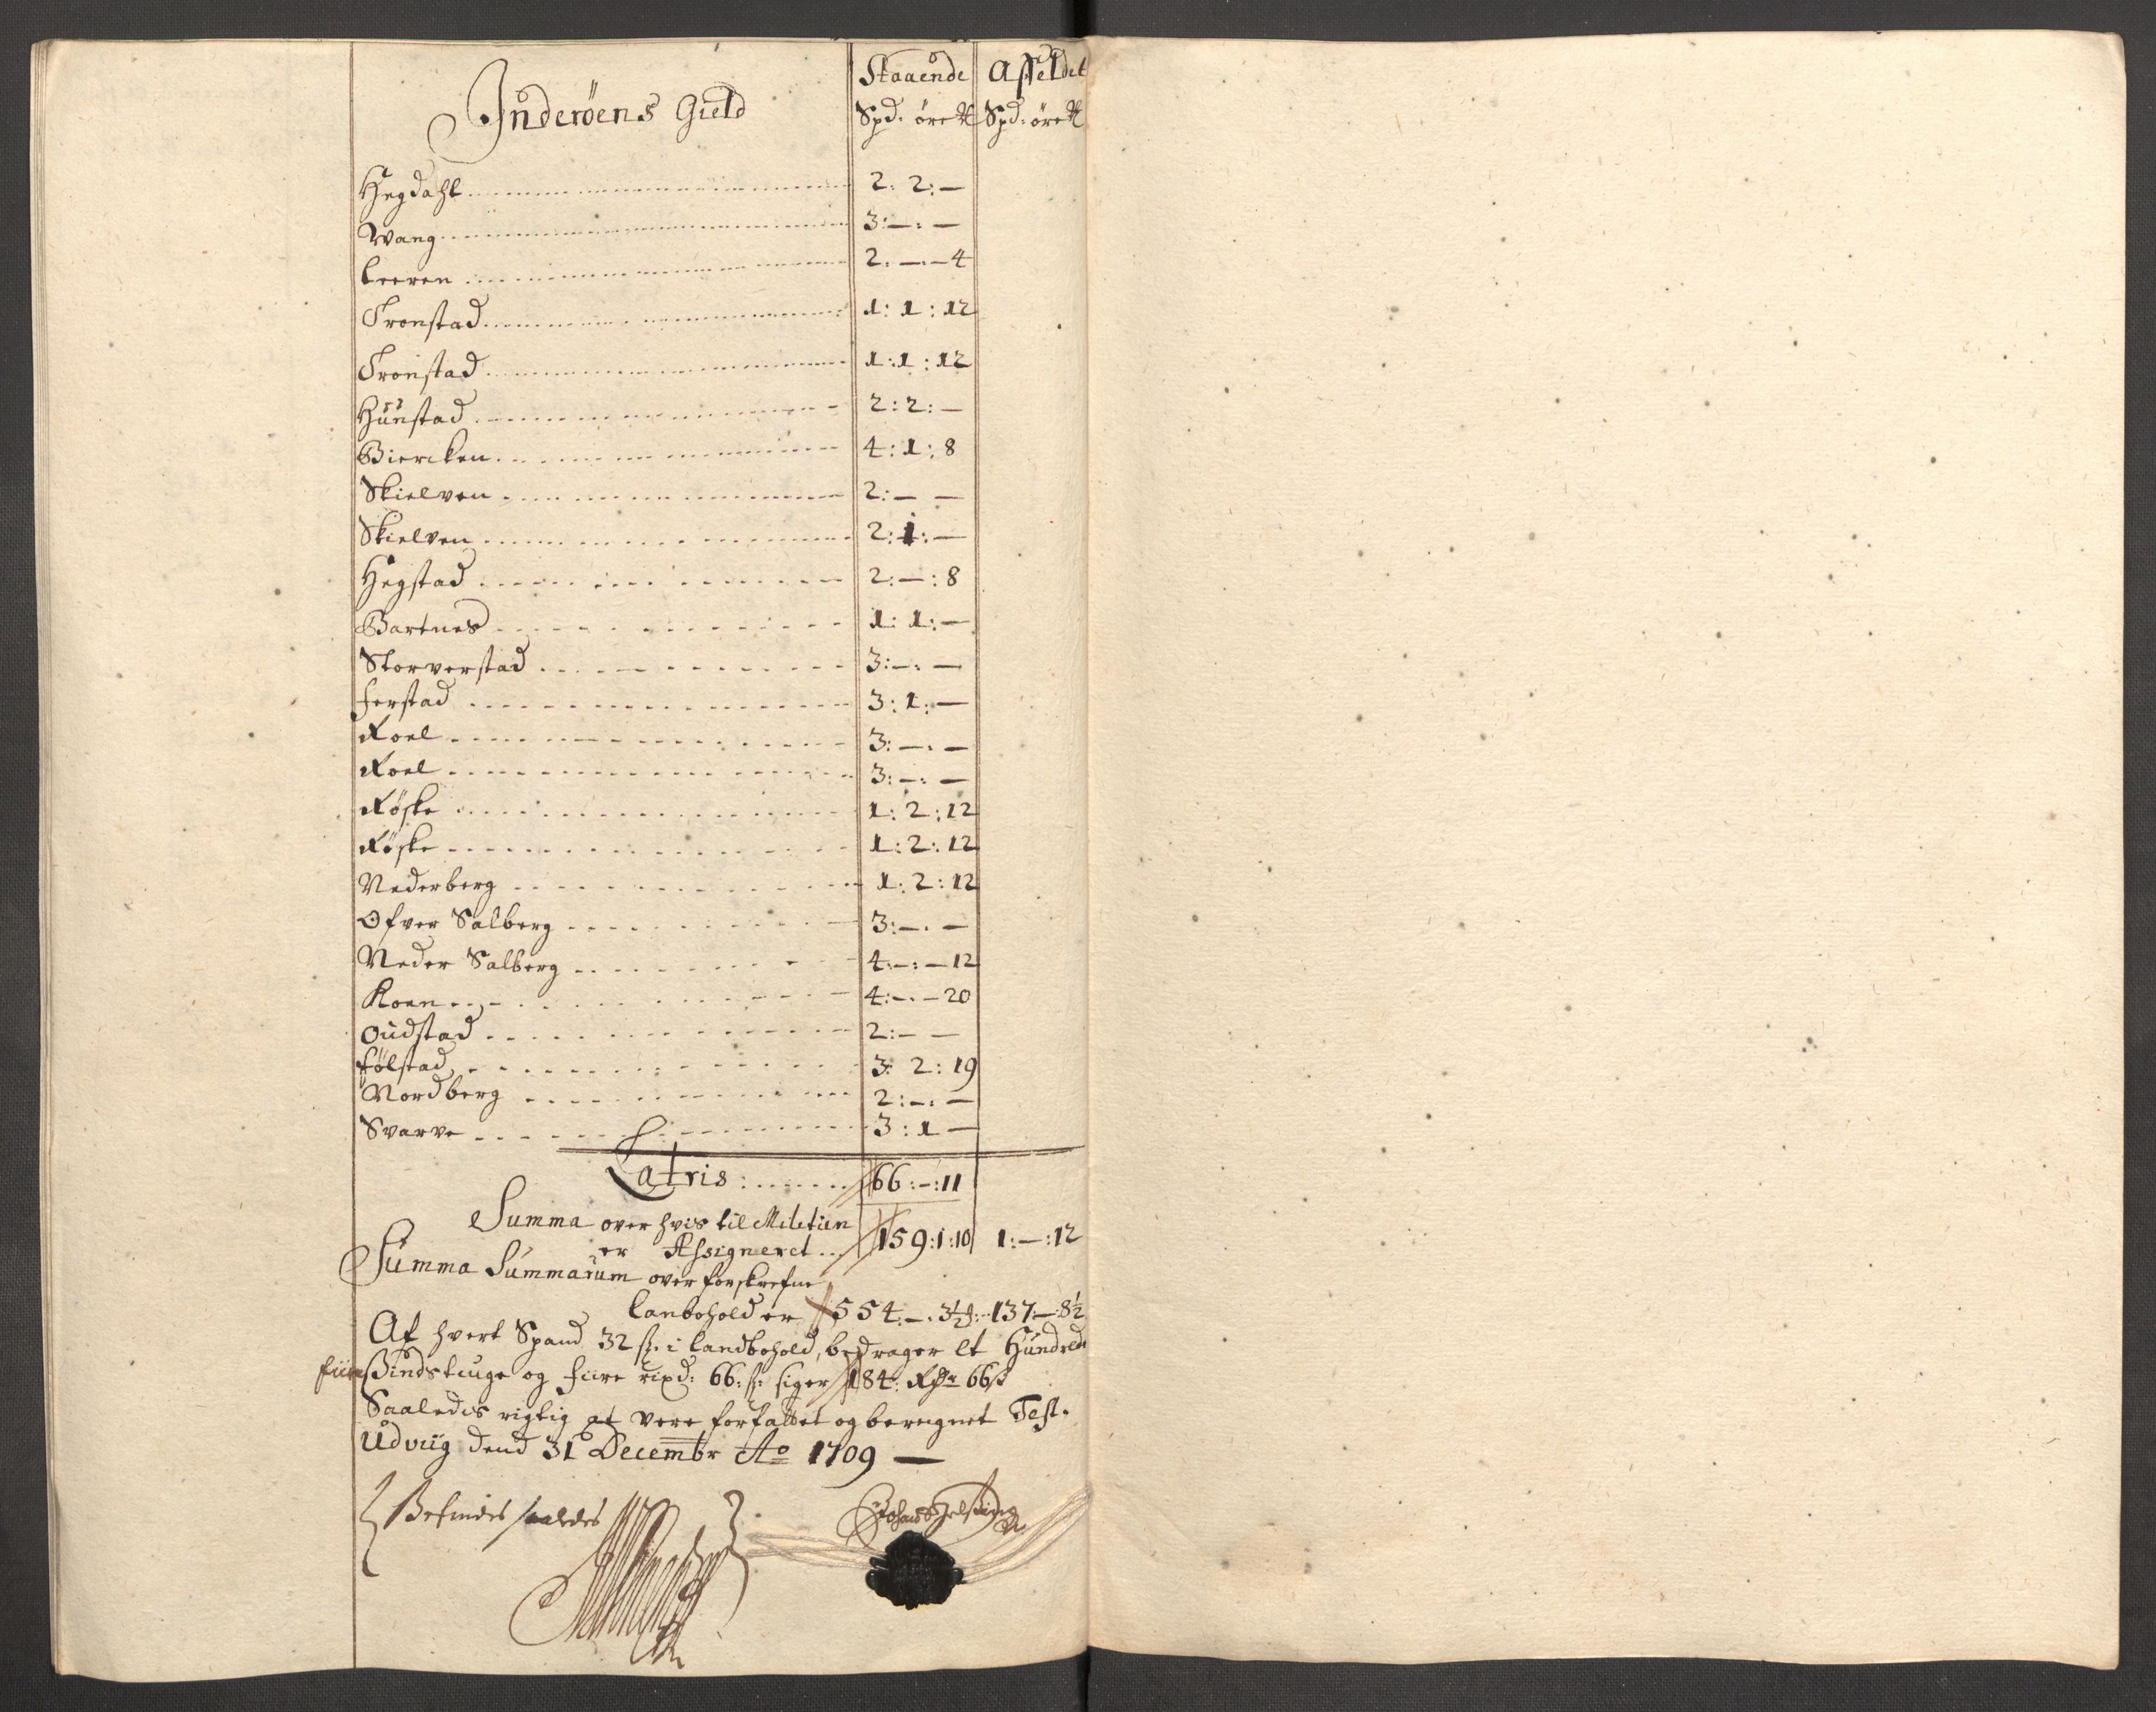 Staaende Affeldet
Inderöens Gield
Spd: öre ℔ Spd: öre ℔
Hegdahl 2: 2: —
Wang 3: —: —
Leeren 2: —: — 4
Tronstad 1: 1: 12
Tronstad 1: 1: 12
Hünstad 2: 2: —
Biercken 4: 1: 8
Skielven 2: — —
Skielven 2: 1: —
Hegstad 2: —: 8
Bartnes 1: 1: —
Storverstad 3: —: —
Ferstad 3: 1: —
Roel 3: —: —
Roel 3: —: —
Røske 1: 2: 12
Røske 1: 2: 12
Nederberg 1: 2: 12
Ofver Salberg 3: —: —
Neder Salberg 4: —: — 12
Koen 4: —: — 20
Oudstad 2: — —
Følstad 3: 2: 19
Nordberg 2: —: —
Svarve 3: 1 —
Latris: 66: —: 11
Summa over hvis til Militien
er Assigneret 159: 1: 10 1: —: 12
Summa Summarum over forskrefne
Landbohold er 554: —: 3½ 137: —: 8½
Af hvert Spand 32 s. i landbohold, bedrager et Hundrede
fiire Sindstiuge og fiire rixd: 66: s: siger 184: Rdr 66 s
Saaledis rigtig at vere forfattet og beregnet Test.
Udviig dend 31 Decembr Ao 1709 —
Befindes saaledes